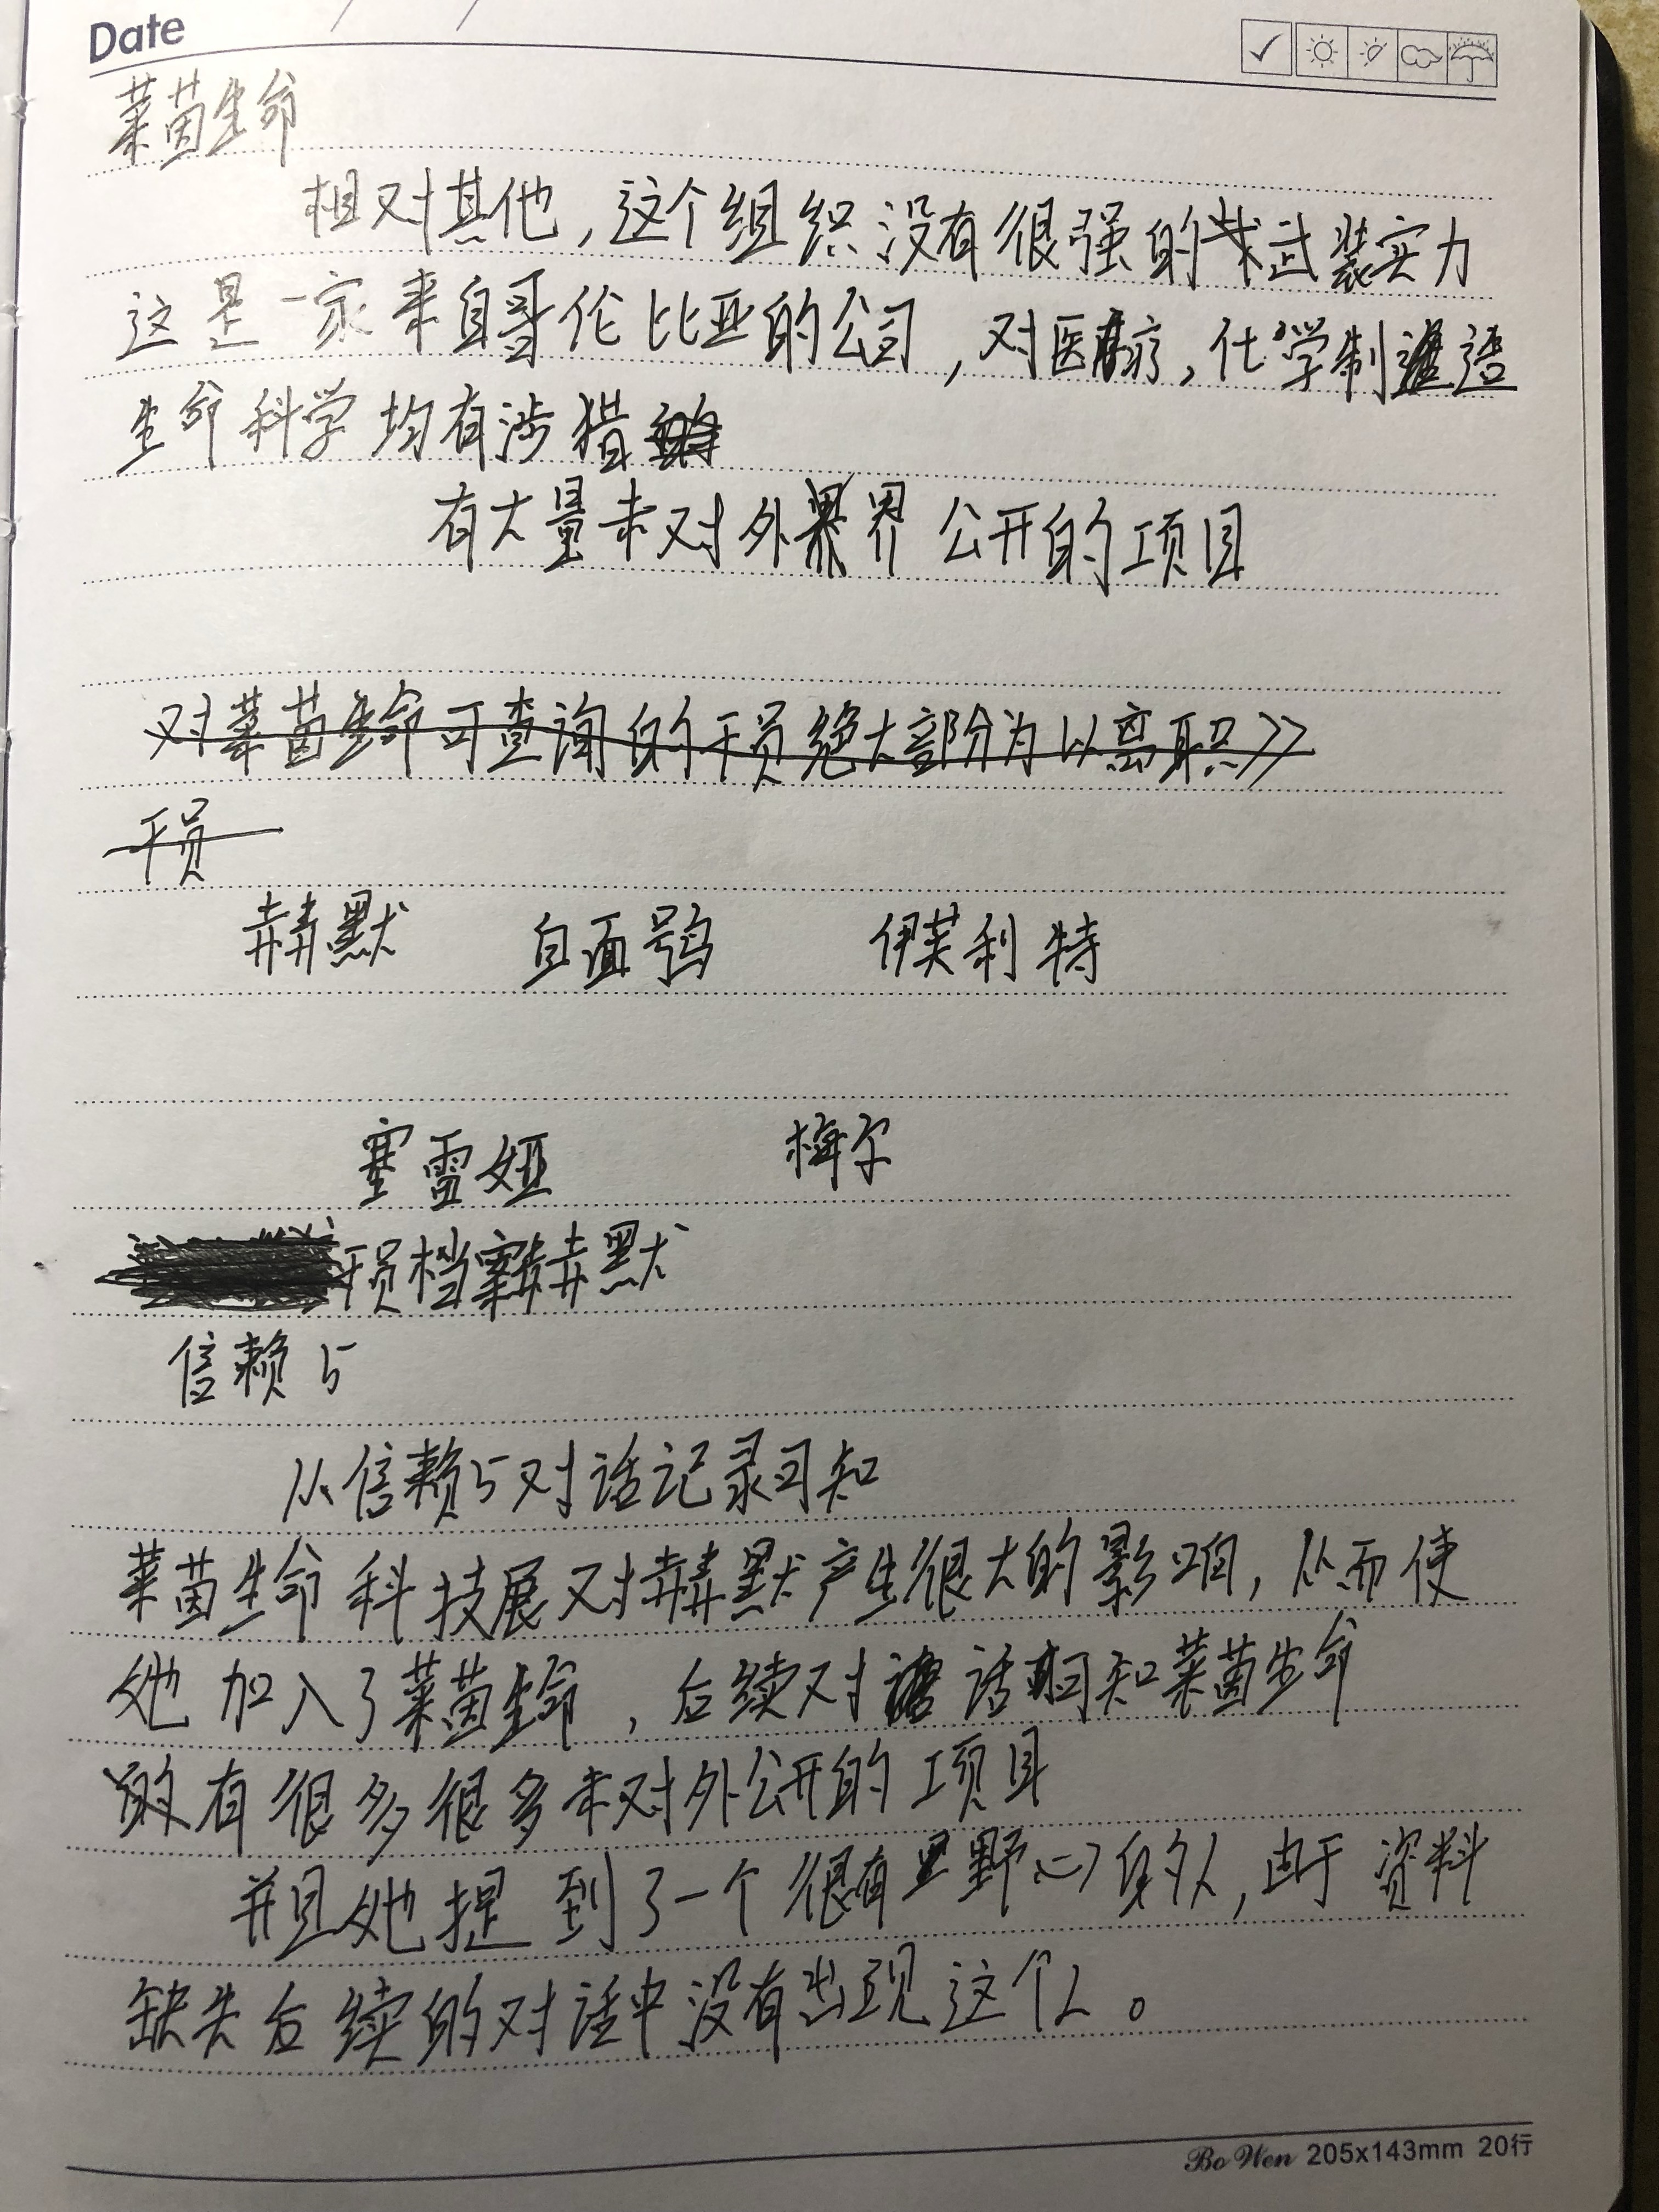 Date / /
莱茵生命
相对其他，这个组织没有很强的武装实力
这是一家来自哥伦比亚的公司，对医疗，化学制造
生命科学均有涉猎
有大量未对外界公开的项目
对莱茵生命可查询的干员绝大部分为以离职》
干员
赫默 白面鸮 伊芙利特
塞雷娅 梅尔
干员档案赫默
信赖5
从信赖5对话记录可知
莱茵生命科技展对赫默产生很大的影响，从而使
她加入了莱茵生命，后续对话可知莱茵生命
有很多很多未对外公开的项目
并且她提到了一个很有野心的人，由于资料
缺失后续的对话中没有出现这个人。
Bo Wen 205x143mm 20行